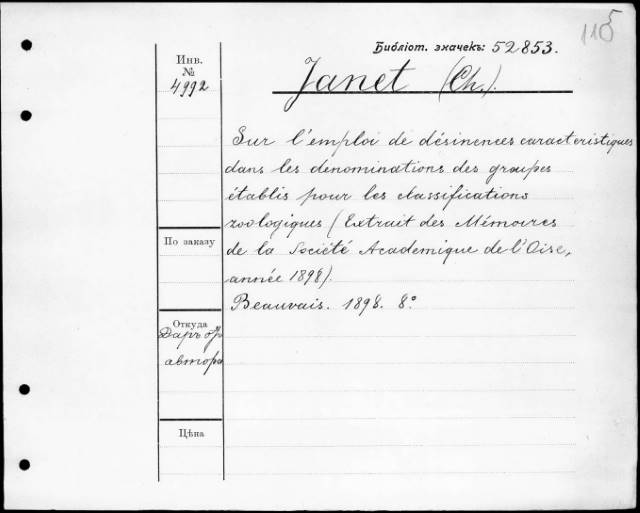 1105
Библіот. значекъ: 52853.
Janet (Ch.).
Инв.
№
4992
Sur l'emploi de désinences caracteristiques
dans les denominations des groupes
établis pour les classifications
zoologiques (Extrait des Mémoires
de la Société Academique de l'Oise,
année 1898).
Beauvais. 1898. 8°
По заказу
Откуда
Даръ
автора
Цѣна